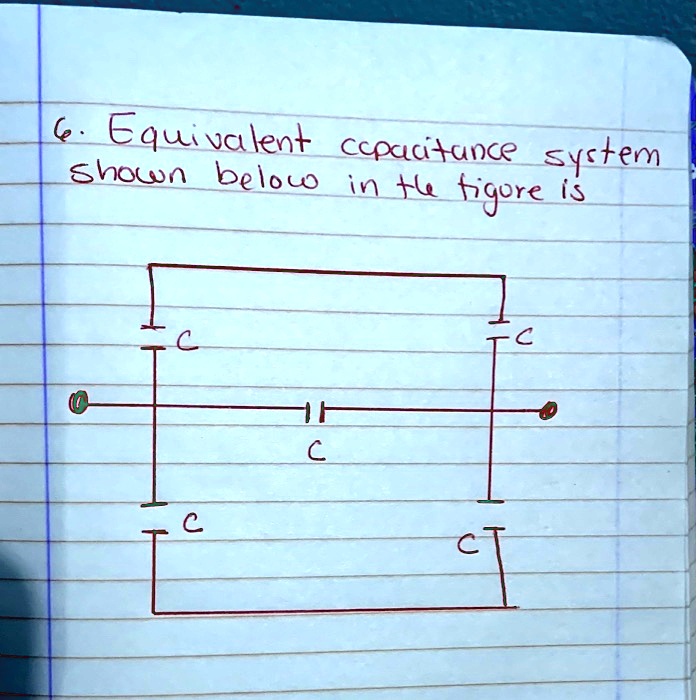 6. Equivalent ccpacitance system
shown below in the figure is
C
C
C
C
C